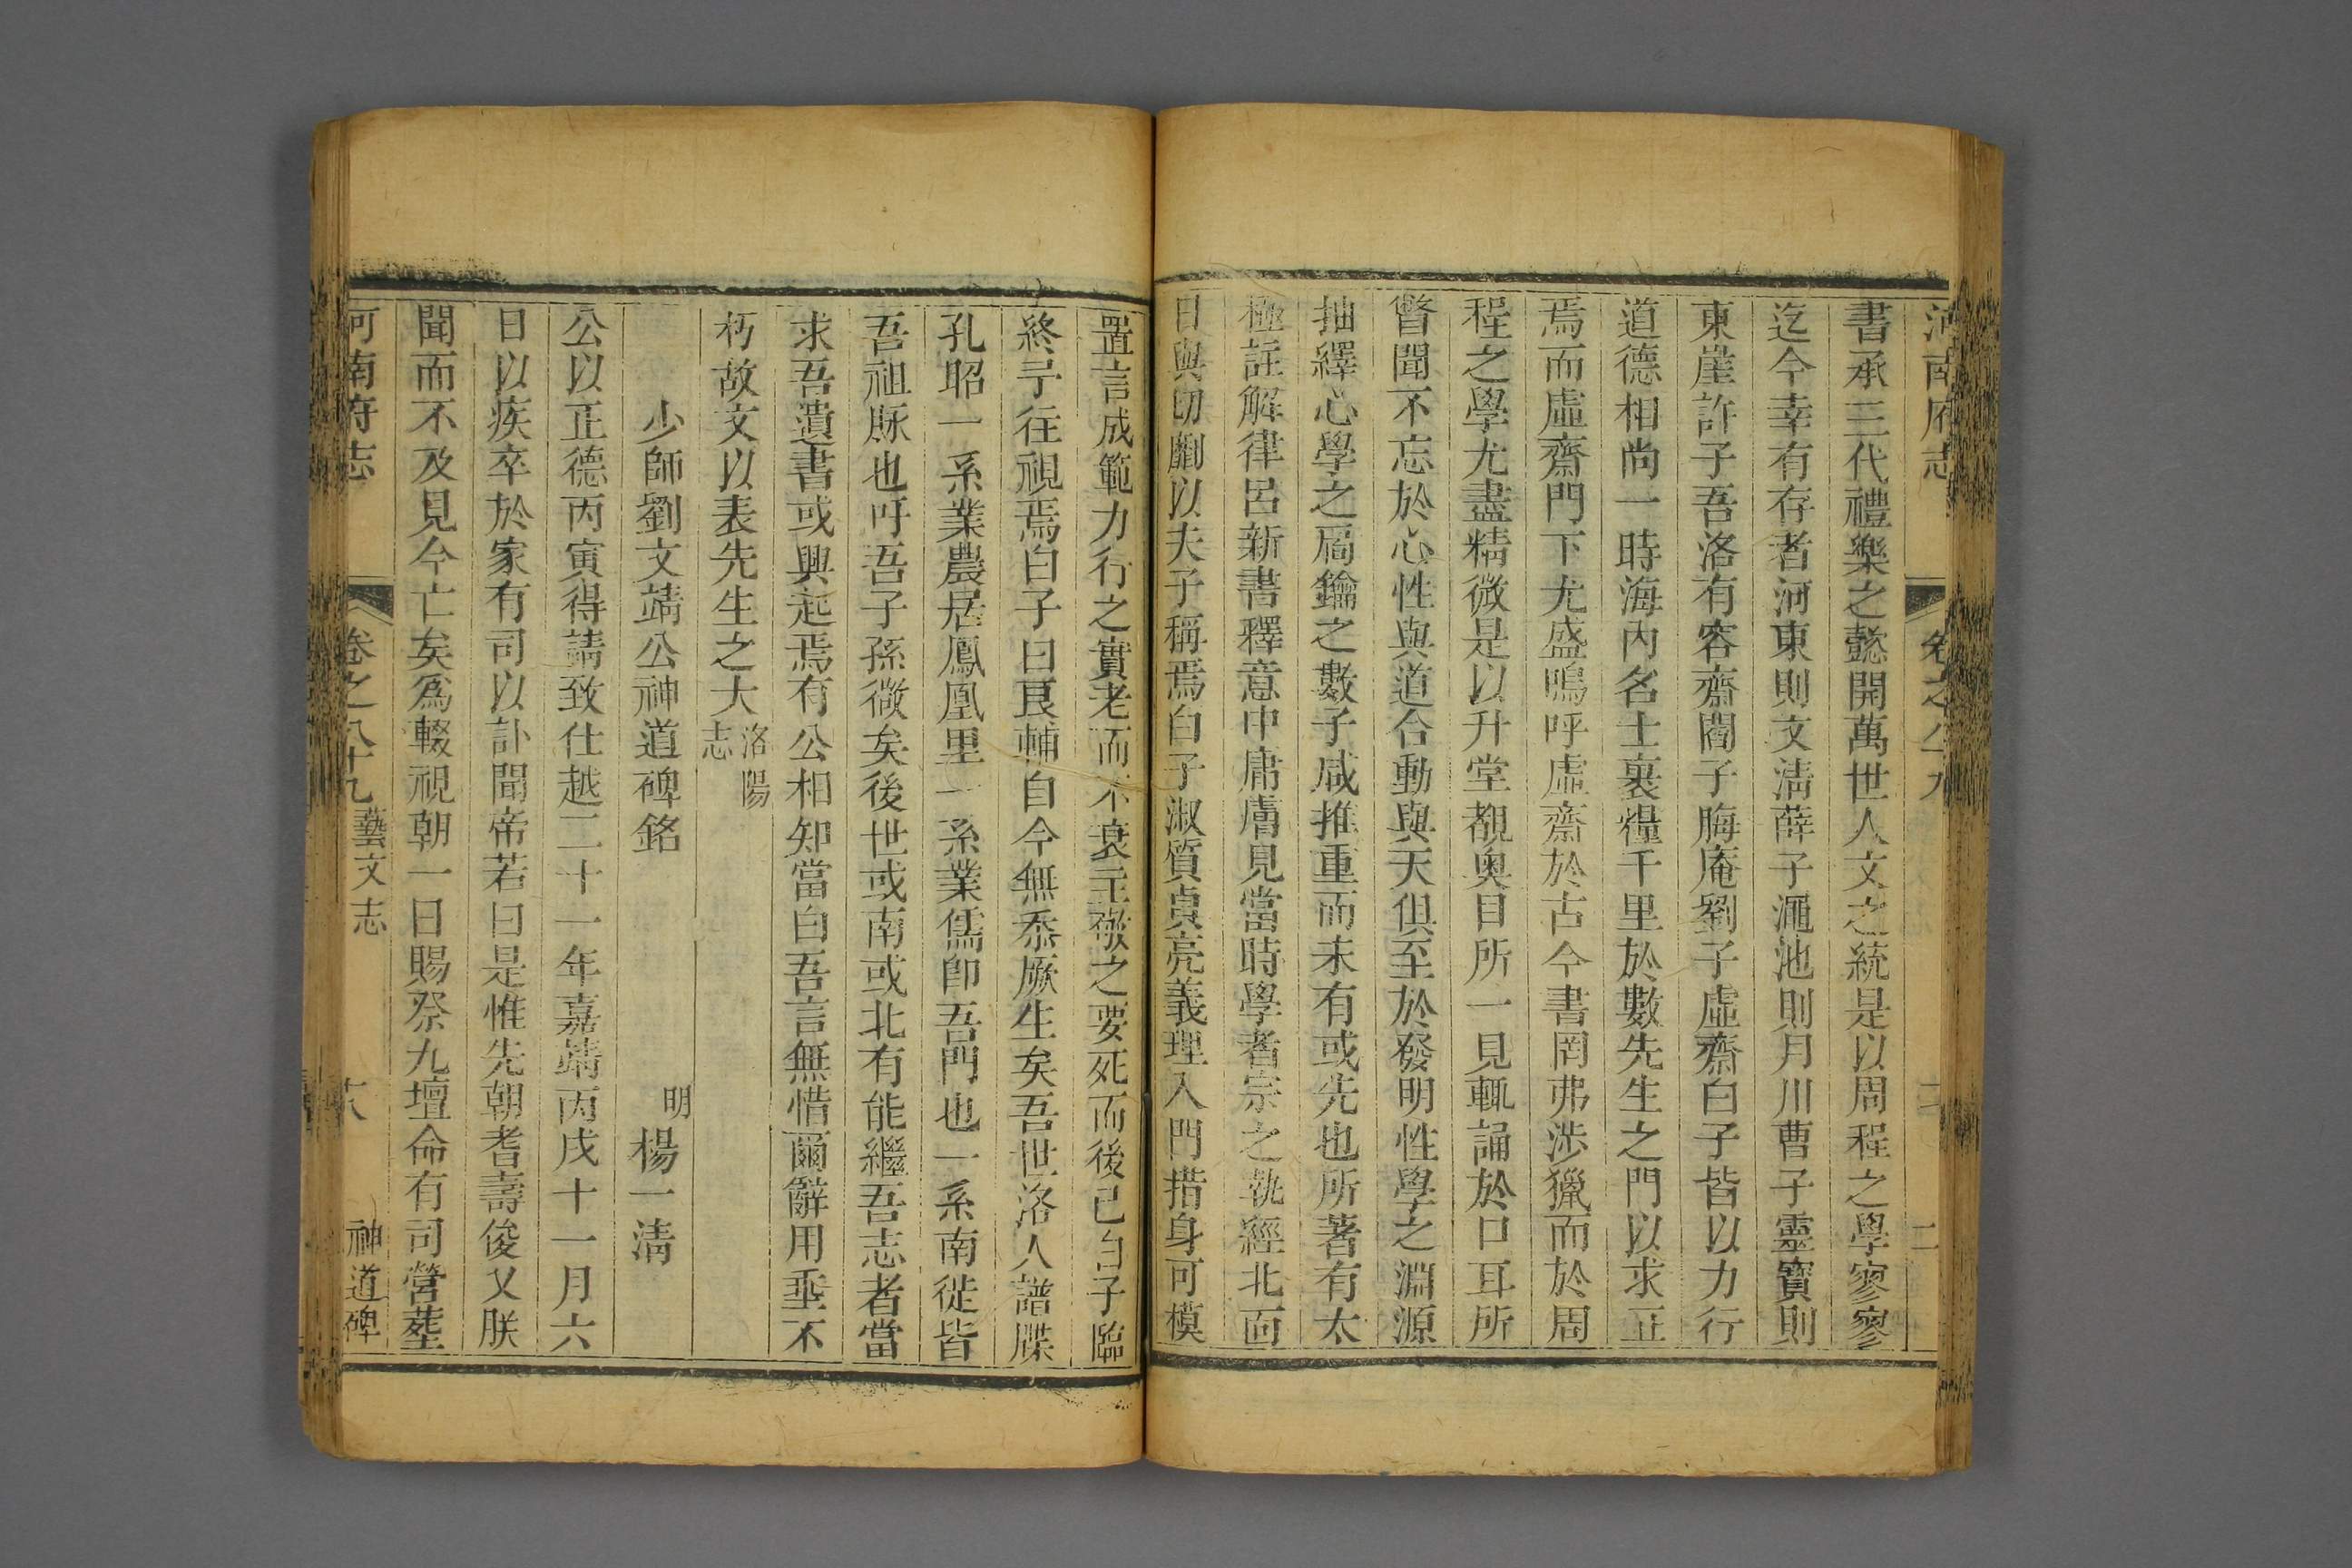 河南府志 卷之八十九
書承三代禮樂之懿開萬世人文之統是以周程之學寥寥
迄今幸有存者河東則文淸薛子澠池則月川曹子靈寶則
東崖許子吾洛有容齋閻子晦庵劉子虛齋白子皆以力行
道德相尚一時海內名士裹糧千里於數先生之門以求正
焉而虛齋門下尤盛嗚呼虛齋於古今書罔弗涉獵而於周
程之學尤盡精微是以升堂覩奧目所一見輒誦於口耳所
瞥聞不忘於心性與道合動與天俱至於發明性學之淵源
抽繹心學之扃鑰之數子咸推重而未有或先也所著有太
極註解律呂新書釋意中庸膚見當時學者宗之執經北面
日與切劘以夫子稱焉白子淑質貞亮義理入門措身可模
置言成範力行之實老而不衰主敬之要死而後已白子臨
終予往視焉白子曰艮輔自今無忝厥生矣吾世洛人譜牒
孔昭一系業農居鳳凰里一系業儒卽吾門也一系南徙皆
吾祖脉也吁吾子孫微矣後世或南或北有能繼吾志者當
求吾遺書或興起焉有公相知當白吾言無惜爾辭用垂不
朽故文以表先生之大洛陽志
少師劉文靖公神道碑銘 明楊一淸
公以正德丙寅得請致仕越二十一年嘉靖丙戌十一月六
日以疾卒於家有司以訃聞帝若曰是惟先朝耆壽俊乂朕
聞而不及見今亡矣爲輟視朝一日賜祭九壇命有司營塟
河南府志 卷之八十九 藝文志 十八 神道碑